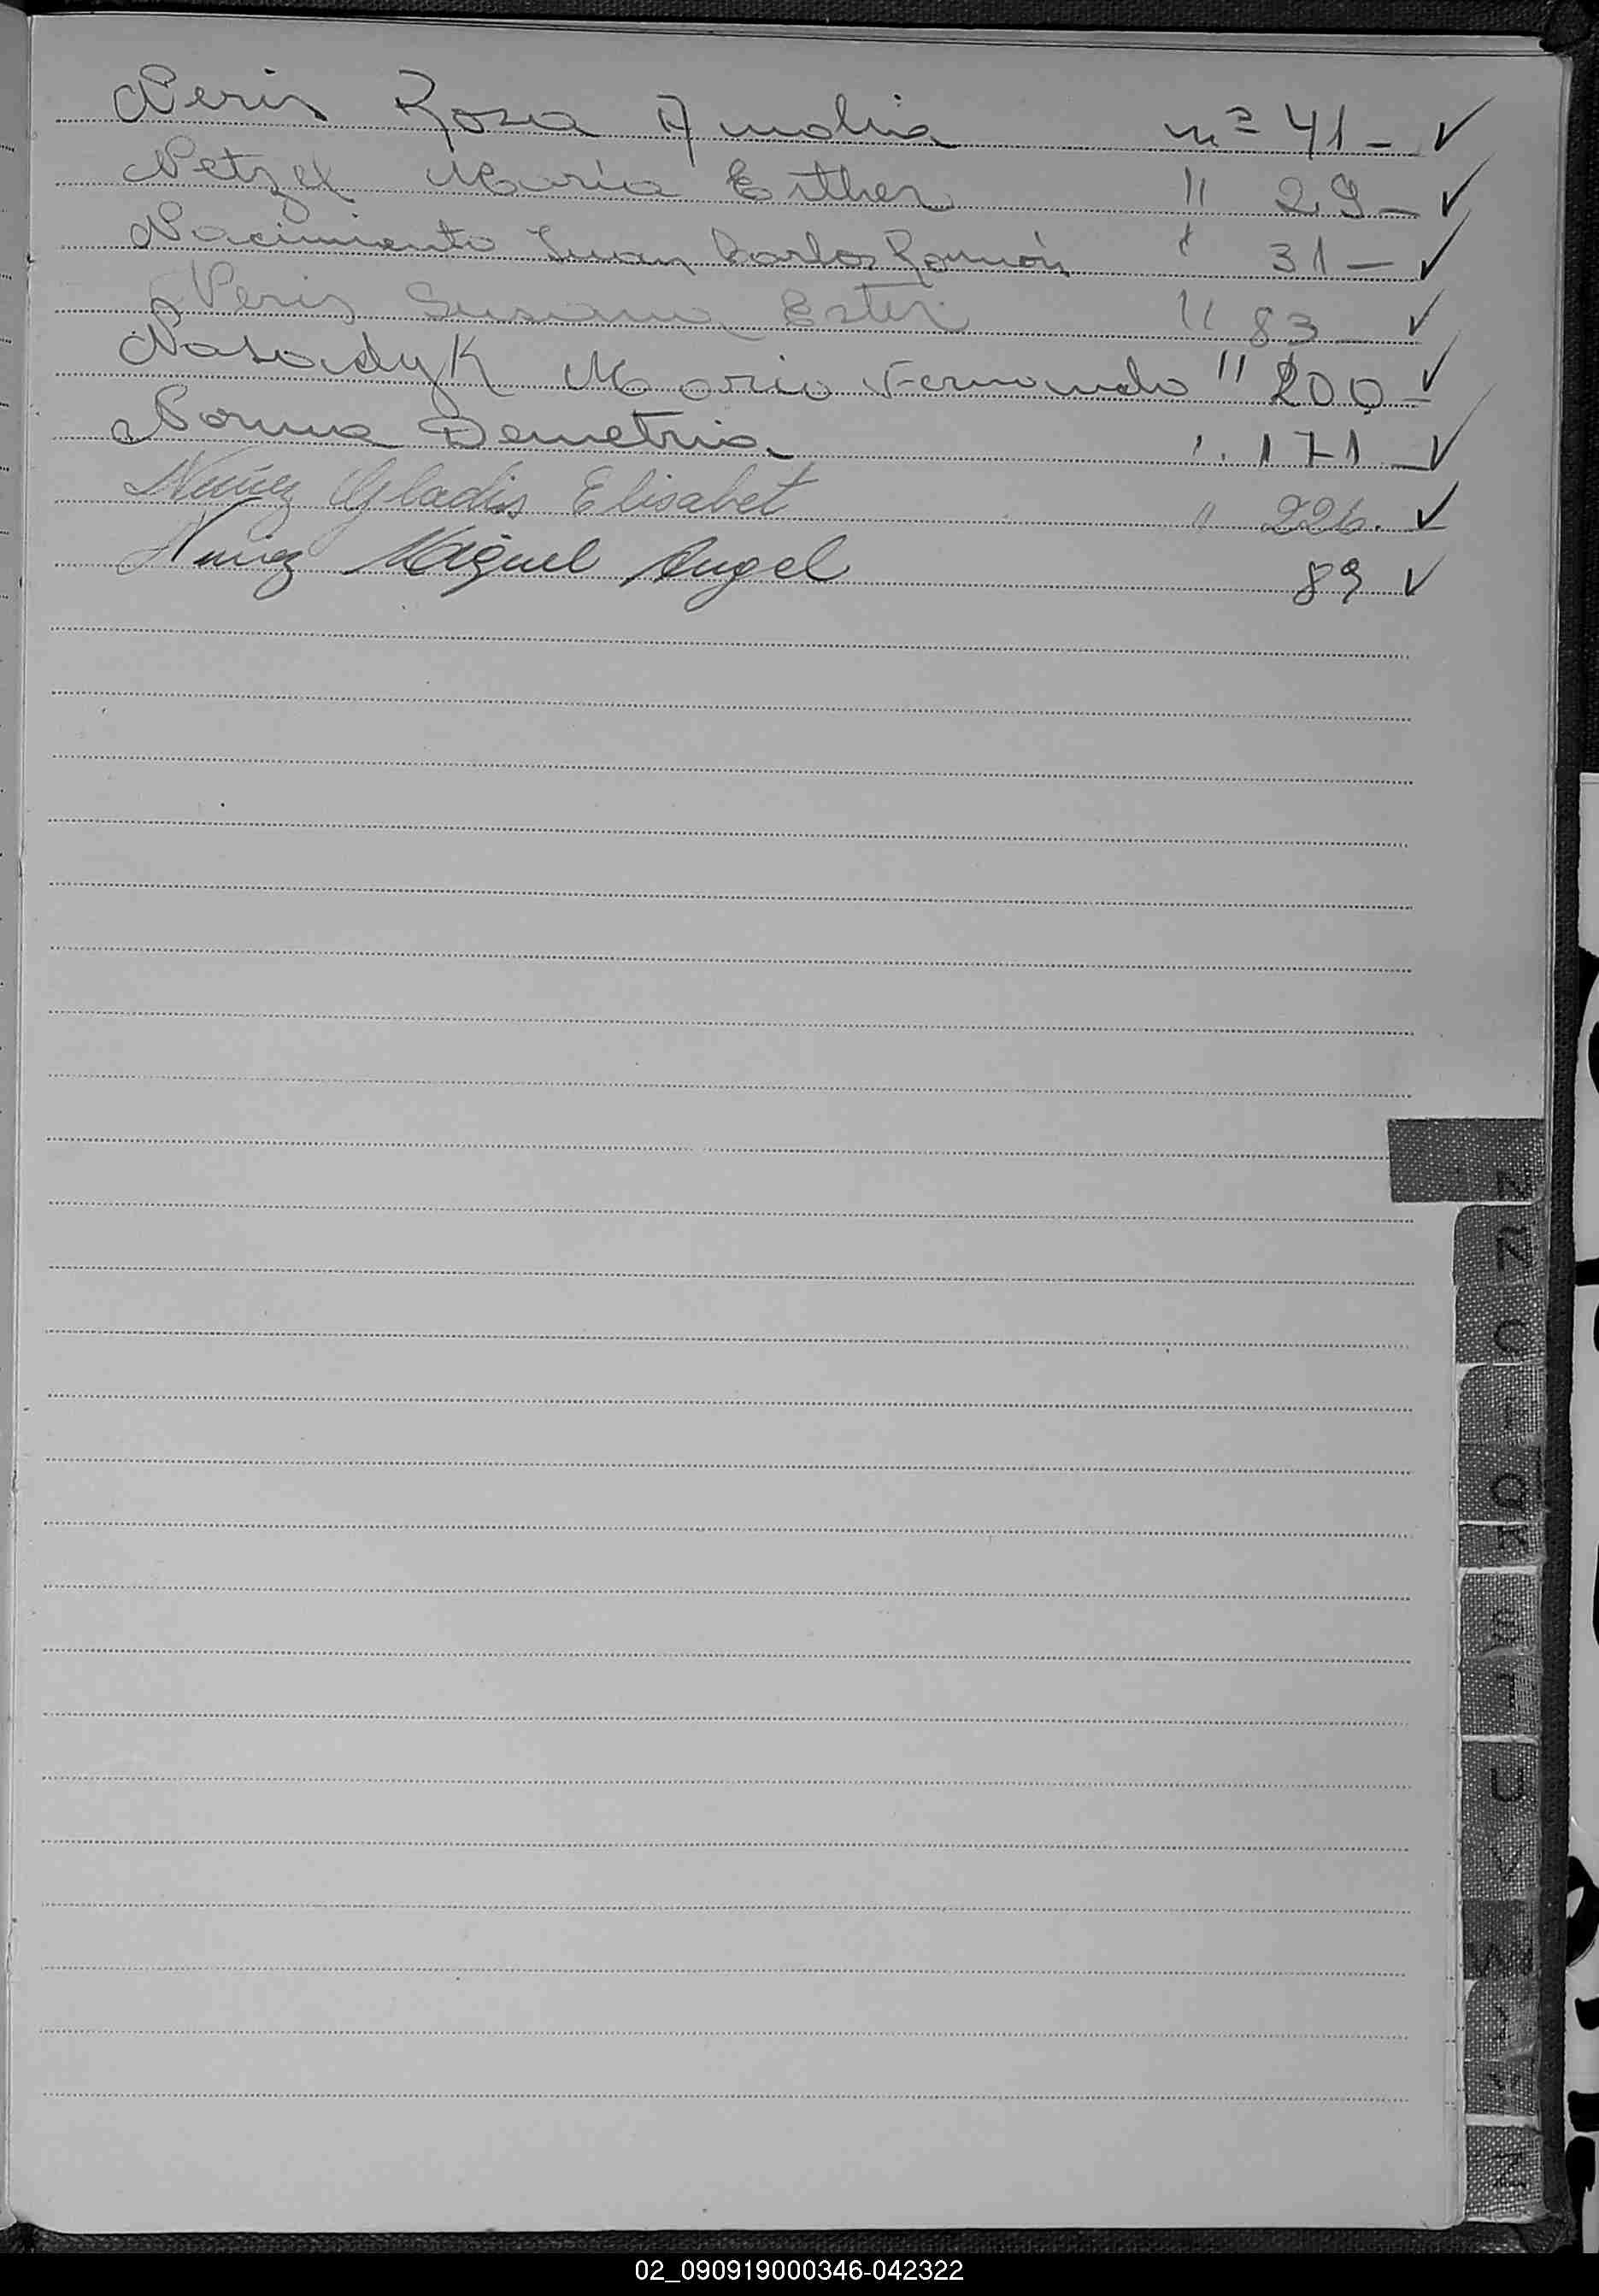 Neris Rosa Amalia nº 41 - ✓
Netzel María Esther " 29 - ✓
Nacimiento Juan Carlos Ramón " 31 - ✓
Neris Susana Ester " 83 - ✓
Mario Fernando " 200 - ✓
Norma Demetria " 171 - ✓
Nuñez Gladis Elisabet " 226. ✓
Nuñez Miguel Angel 89 ✓
N
Ñ
O
P
Q
R
S
T
U
V
W
X
Y
Z
02_090919000346-042322